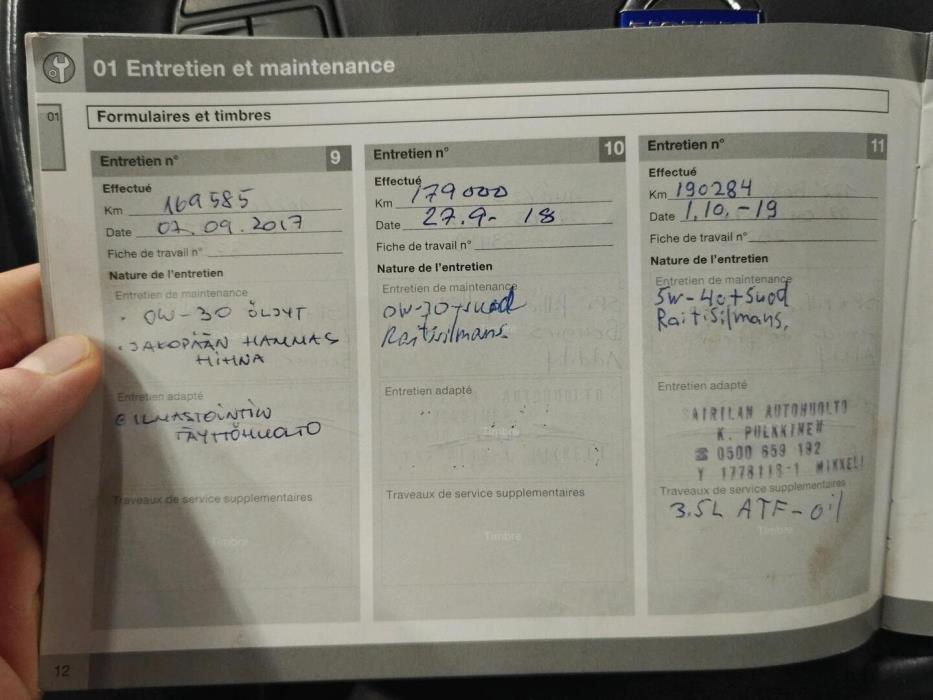 01 Entretien et maintenance
01
Formulaires et timbres
Entretien n° 9
Effectué
Km 169585
Date 07.09.2017
Fiche de travail n°
Nature de l'entretien
Entretien de maintenance
• 0W-30 ÖLJYT
• JAKOPÄÄN HAMMAS
HIHNA
Entretien adapté
ILMASTOINTIN
TÄYTTÖHUOLTO
Traveaux de service supplementaires
Timbre
Entretien n° 10
Effectué
Km 179000
Date 27.9- 18
Fiche de travail n°
Nature de l'entretien
Entretien de maintenance
0W-30+suod
Raitisilmans.
Entretien adapté
Timbre
Traveaux de service supplementaires
Timbre
Entretien n° 11
Effectué
Km 190284
Date 1.10.-19
Fiche de travail n°
Nature de l'entretien
Entretien de maintenance
5w-40+Suod
Raitisilmans.
Entretien adapté
SAIRILAN AUTOHUOLTO
K. PULKKINEN
☎ 0500 659 192
Y 1778118-1 MIKKELI
Traveaux de service supplementaires
3.5L ATF-oil
Timbre
12